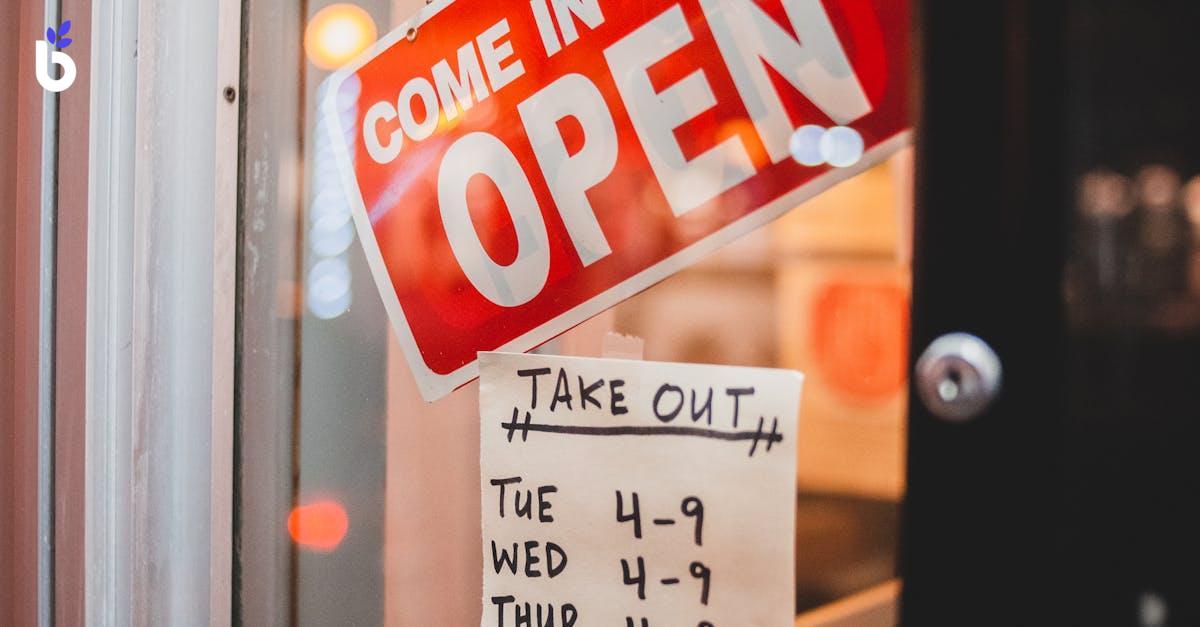 COME IN
OPEN
TAKE OUT
TUE 4-9
WED 4-9
THUR
b